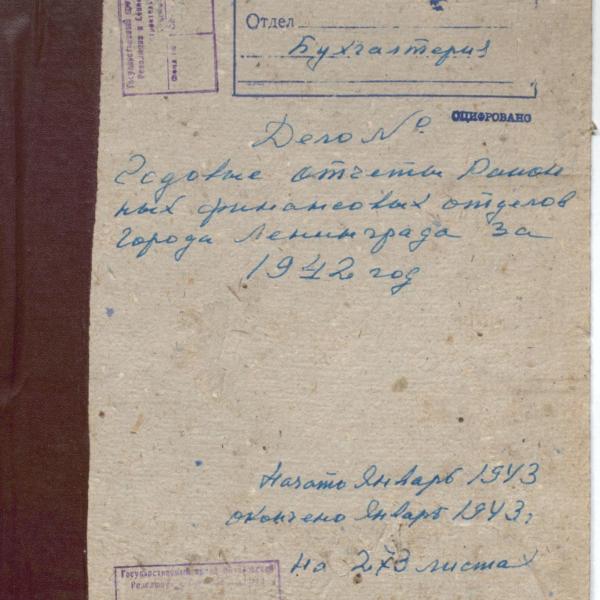 Отдел
Бухгалтерия
ОЦИФРОВАНО
Дело №
Годовые отчеты Район
ных финансовых отделов
города Ленинграда за
1942 год
Начато Январь 1943
окончено Январь 1943 г
на 273 листах
Государственный архив Октябрьской